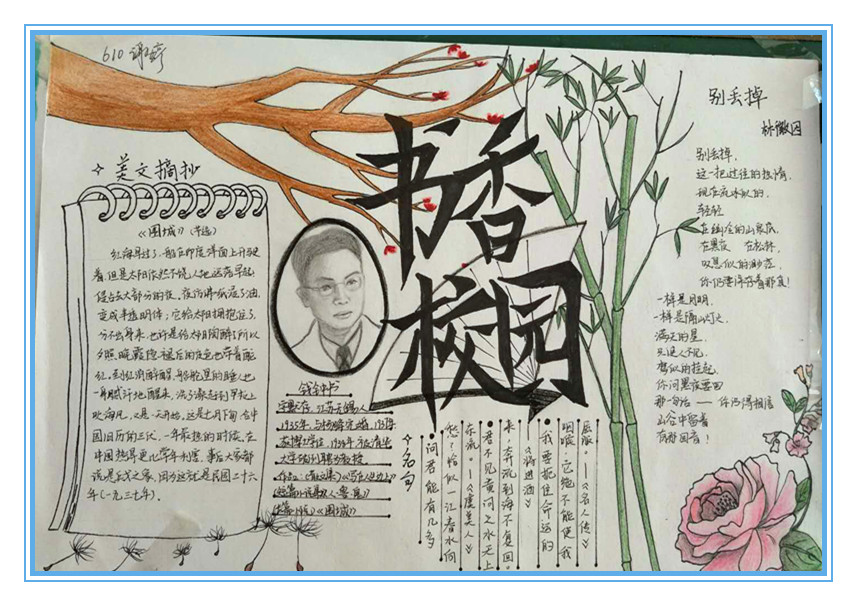 610 谢婷
书香
校园
美文摘抄
《围城》(节选)
红海早过了,船在印度洋面上开驶
着,但是太阳依然不饶人地迟落早起
侵占去大部分的夜。夜仿佛纸浸了油,
变成半透明体;它给太阳拥抱住了,
分不出身来,也许是给太阳陶醉了,所以
夕照晚霞隐褪后的夜色也带着酡
红。到红消醉醒,船舱里的睡人也
一身腻汗地醒来,洗了澡赶到甲板上
吹海风,又是一天开始。这是七月下旬,合中
国旧历的三伏,一年最热的时候。在
中国热得更比常年利害,事后大家都
说是兵戈之象,因为这就是民国二十六
年(一九三七年)。
钱钟书
江苏无锡人
1935年,与杨绛完婚,
作品:《写在人生边上》
《围城》
名句
问君能有几多
愁?恰似一江春水向
东流。——《虞美人》
君不见黄河之水天上
来,奔流到海不复回。
——《将进酒》
我要扼住命运的
咽喉,它绝不能使我
屈服。——《名人传》
别丢掉
林徽因
别丢掉,
这一把过往的热情,
现在流水似的,
轻轻
在幽冷的山泉底,
在黑夜 在松林,
叹息似的渺茫,
你仍要保存着那真!
一样是月明,
一样是隔山灯火,
满天的星,
只使人不见,
梦似的挂起,
你问黑夜要回
那一句话——你仍得相信
山谷中留着
有那回音!